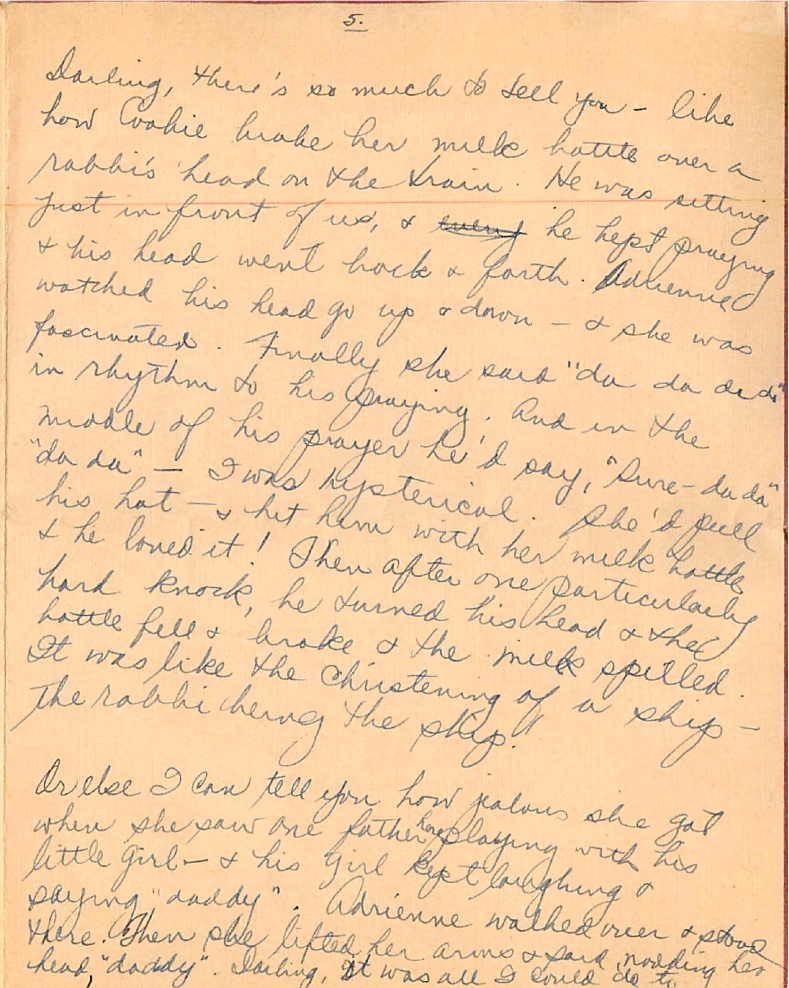 5.
Darling, there's so much to tell you – like
how Cookie broke her milk bottle over a
rabbi's head on the train. He was sitting
just in front of us, & he kept praying
& his head went back & forth. Adrienne
watched his head go up & down – & she was
fascinated. Finally she said "da da da da"
in rhythm to his praying. And in the
middle of his prayer he'd say, "Sure – da da"
"da da" – I was hysterical. She'd pull
his hat – & hit him with her milk bottle
& he loved it! Then after one particularly
hard knock, he turned his head & the
bottle fell & broke & the milk spilled.
It was like the christening of a ship –
the rabbi being the ship!
Or else I can tell you how jealous she got
when she saw one father here playing with his
little girl – & his girl kept laughing &
saying "daddy". Adrienne walked over & stood
there. Then she lifted her arms & said, nodding her
head, "daddy". Darling, it was all I could do to